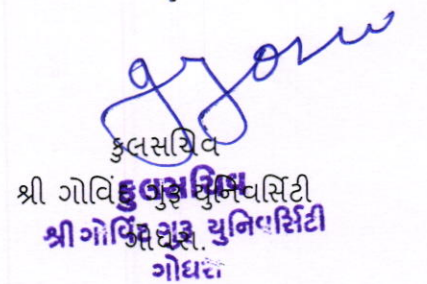 કુલસચિવ
શ્રી ગોવિંદ ગુરૂ યુનિવર્સિટી
ગોધરા.
કુલસચિવ
શ્રી ગોવિંદ ગુરૂ યુનિવર્સિટી
ગોધરા